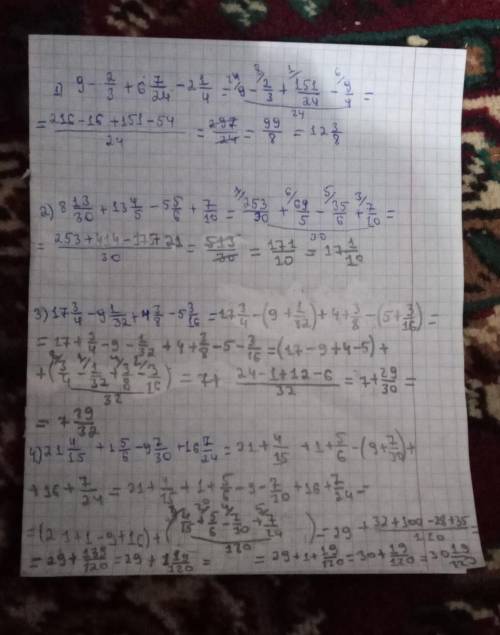 1) 9 - 2/3 + 6 7/24 - 2 1/4 = 9 - 2/3 + 151/24 - 9/4 =
= (216 - 16 + 151 - 54)/24 = 297/24 = 99/8 = 12 3/8
2) 8 13/30 + 13 4/5 - 5 5/6 + 7/10 = 253/30 + 69/5 - 35/6 + 7/10 =
= (253 + 414 - 175 + 21)/30 = 513/30 = 171/10 = 17 1/10
3) 17 3/4 - 9 1/32 + 4 3/8 - 5 3/16 = 17 3/4 - (9 + 1/32) + 4 + 3/8 - (5 + 3/16) =
= 17 + 3/4 - 9 - 1/32 + 4 + 3/8 - 5 - 3/16 = (17 - 9 + 4 - 5) +
+ (3/4 - 1/32 + 3/8 - 3/16) = 7 + (24 - 1 + 12 - 6)/32 = 7 + 29/30 =
= 7 29/32
4) 21 4/15 + 1 5/6 - 9 7/30 + 16 7/24 = 21 + 4/15 + 1 + 5/6 - (9 + 7/30) +
+ 16 + 7/24 = 21 + 4/15 + 1 + 5/6 - 9 - 7/30 + 16 + 7/24 =
= (21 + 1 - 9 + 16) + (4/15 + 5/6 - 7/30 + 7/24) = 29 + (32 + 100 - 28 + 35)/120 =
= 29 + 139/120 = 29 + 1 19/120 = = 29 + 1 + 19/120 = 30 + 19/120 = 30 19/120